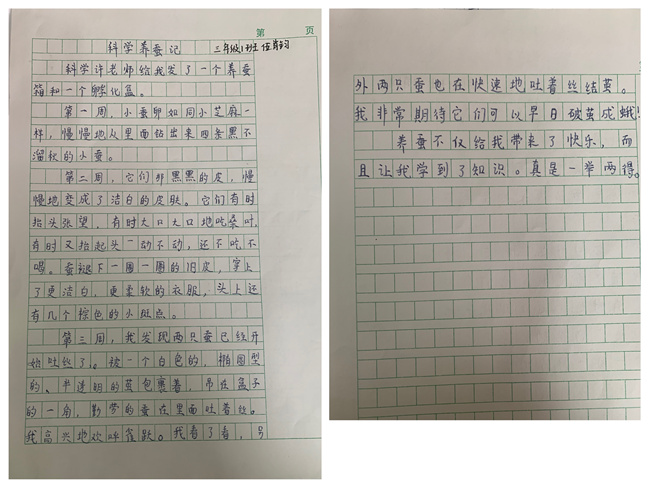 第 页
科学养蚕记 三年级1班
科学许老师给我发了一个养蚕
箱和一个孵化盒。
第一周，小蚕卵如同小芝麻一
样，慢慢地从里面钻出来四条黑不
溜秋的小蚕。
第二周，它们那黑黑的皮，慢
慢地变成了洁白的皮肤。它们有时
抬头张望，有时大口大口地吃桑叶，
有时又抬起头一动不动，还不吃不
喝。蚕褪下一圈一圈的旧皮，穿上
了更洁白，更柔软的衣服，头上还
有几个棕色的小斑点。
第三周，我发现两只蚕已经开
始吐丝了。被一个白色的，椭圆型
的、半透明的茧包裹着，吊在盒子
的一角，勤劳的蚕在里面吐着丝。
我高兴地欢呼雀跃。我看了看，另
外两只蚕也在快速地吐着丝结茧。
我非常期待它们可以早日破茧成蛾！
养蚕不仅给我带来了快乐，而
且让我学到了知识。真是一举两得。